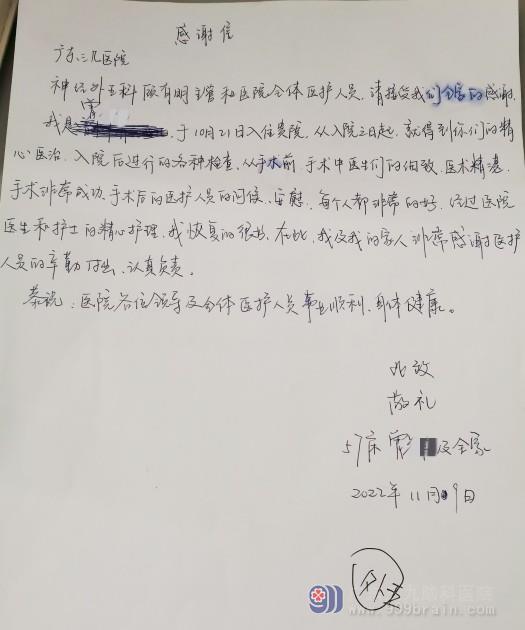 感谢信
广东三九医院
神经外五科顾有明主管和医院全体医护人员，请接受我们全家的感谢，
我是曾，于10月21日入住贵院，从入院之日起，就得到你们的精
心医治，入院后进行的各种检查，从手术前，手术中医生们的细致，医术精湛，
手术非常成功，手术后的医护人员的问候、安慰，每个人都非常的好，经过医院
医生和护士的精心护理，我恢复的很好，在此，我及我的家人非常感谢医护
人员的辛勤付出，认真负责。
恭祝：医院各位领导及全体医护人员事业顺利，身体健康。
此致
敬礼
57床 曾 及全家
2022年11月9日
九脑科医院
www.999brain.com